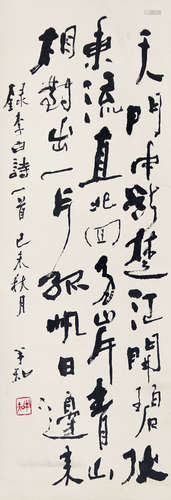 天門中斷楚江開碧水
東流直北回兩岸青山
相對出一片孤帆日邊來
錄李白詩一首己未秋月